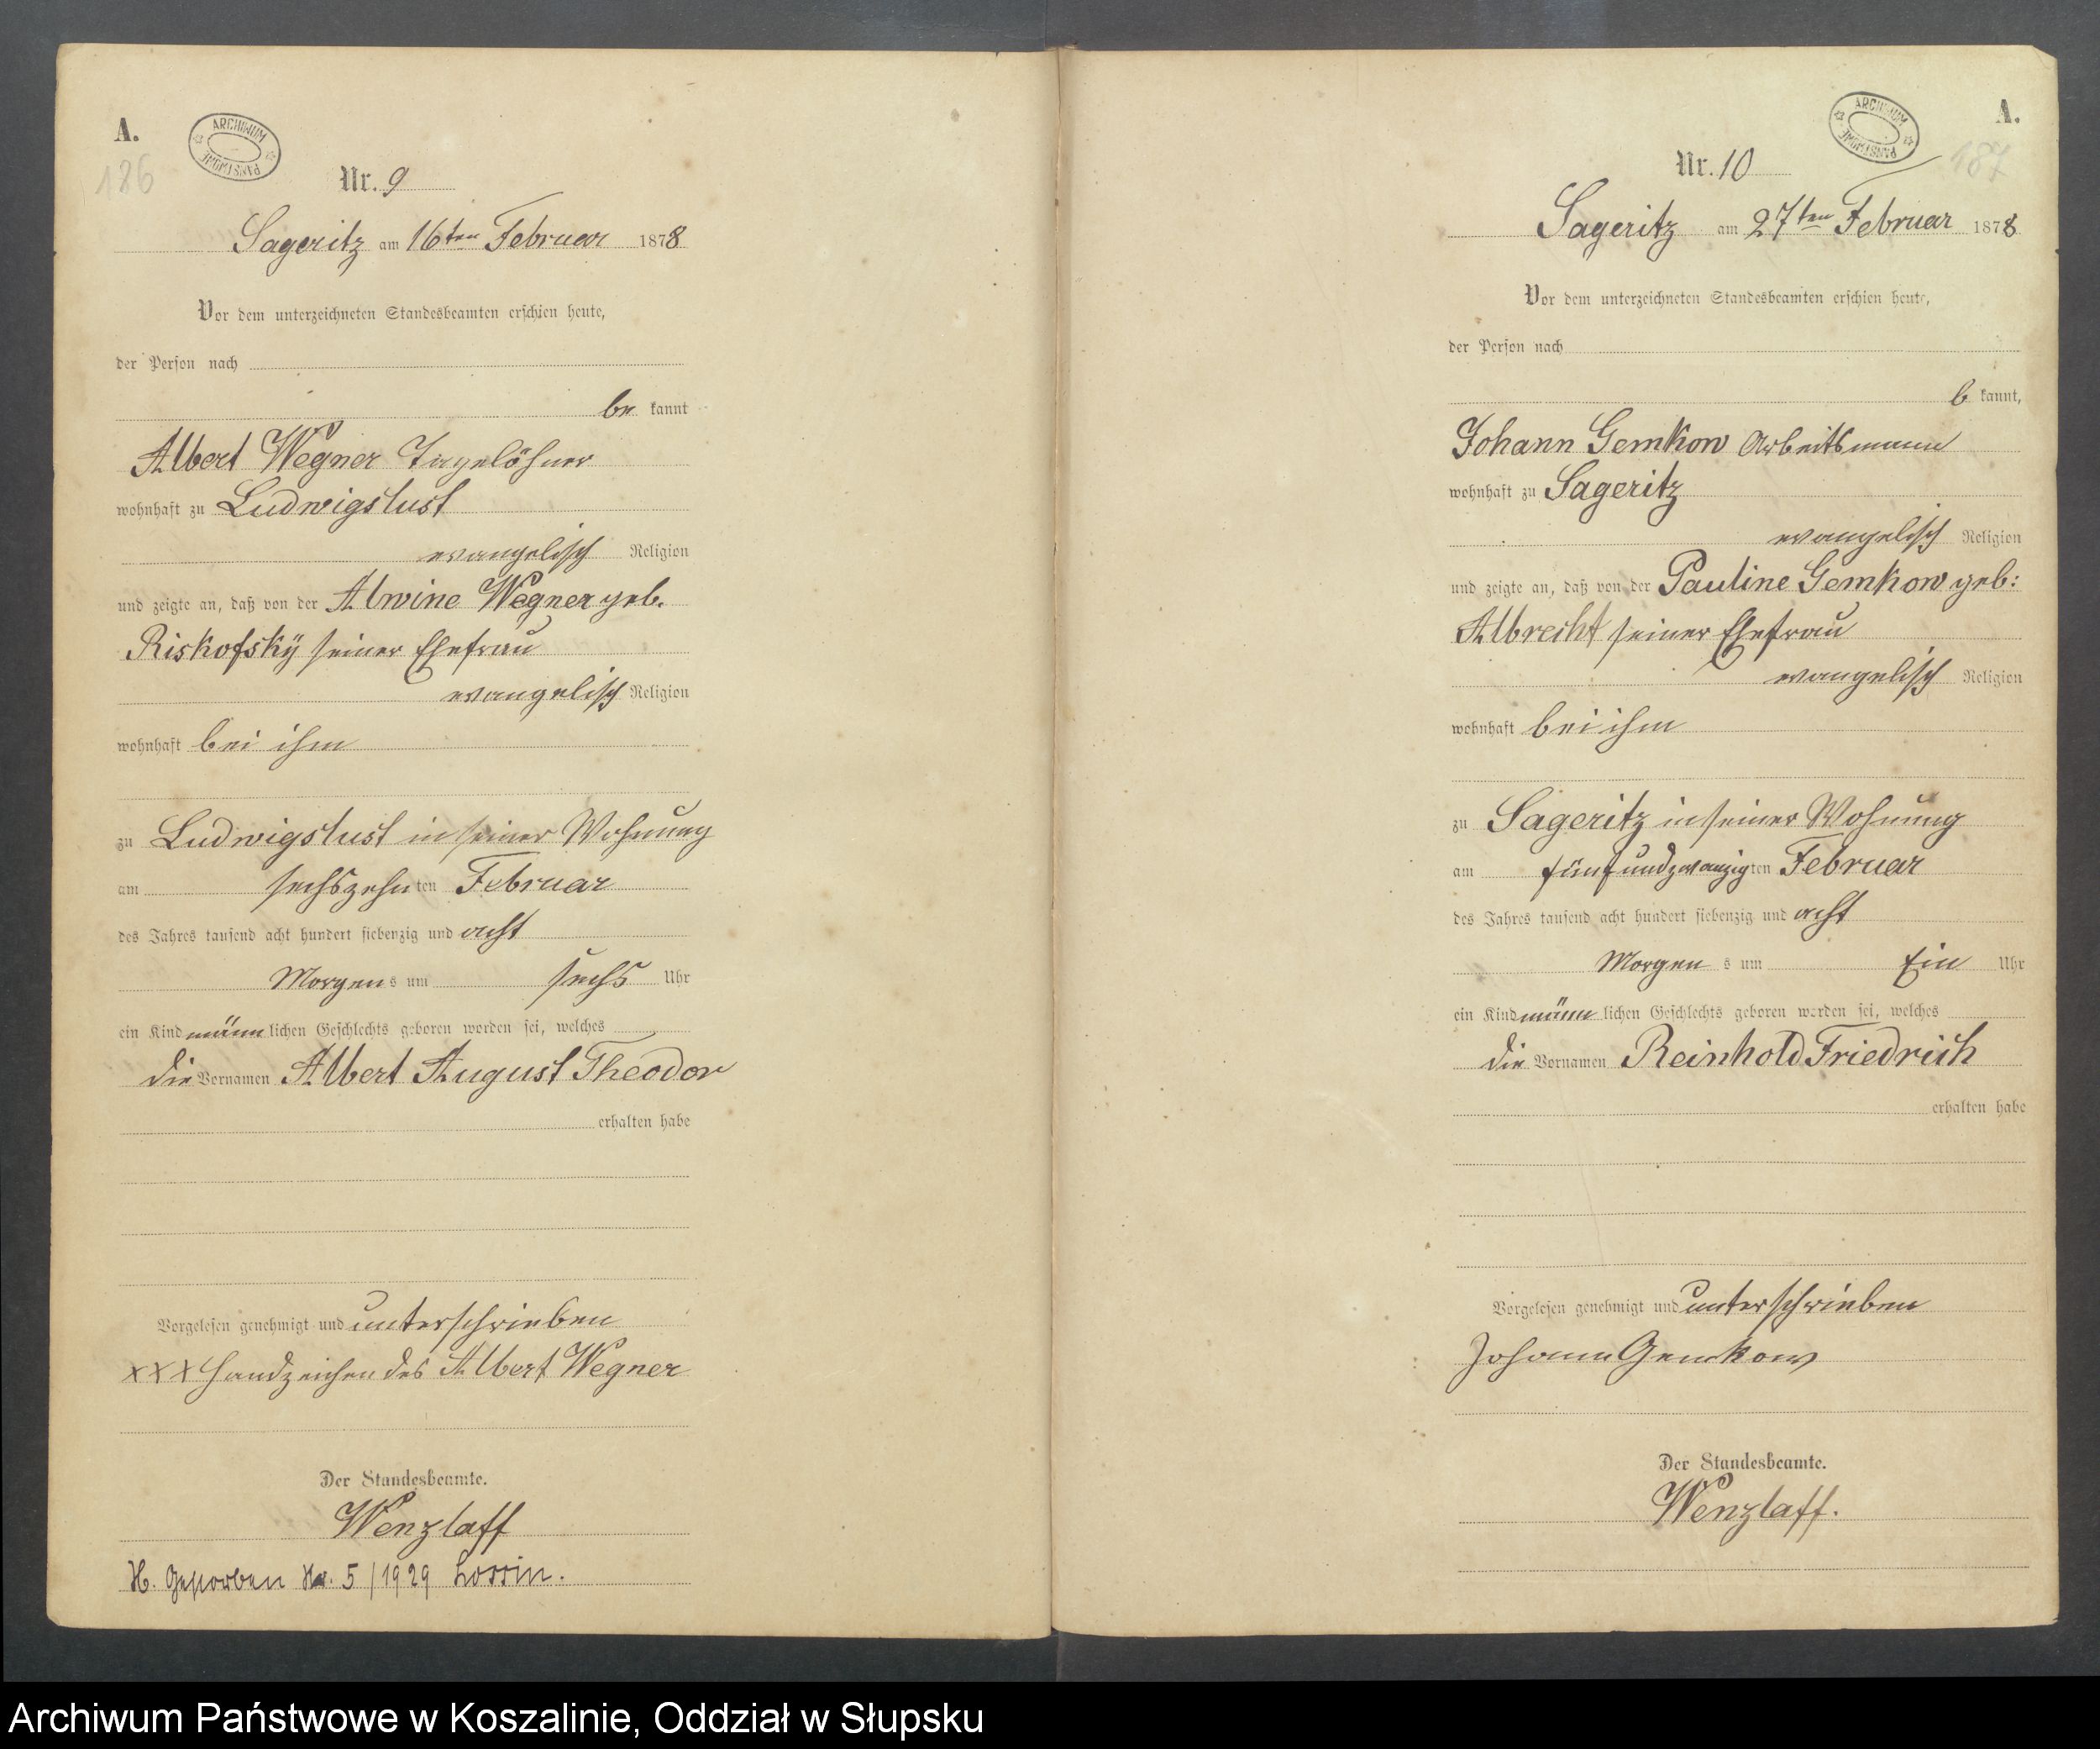 A.
186
ARCHIWUM PAŃSTWOWE
Nr. 9
Sageritz am 16ten Februar 1878
Vor dem unterzeichneten Standesbeamten erschien heute,
der Person nach
be kannt
Albert Wegner Tagelöhner
wohnhaft zu Ludwigslust
evangelisch Religion
und zeigte an, daß von der Alwine Wegner geb.
Riskofsky seiner Ehefrau
evangelisch Religion
wohnhaft bei ihm
zu Ludwigslust in seiner Wohnung
am sechszehnten Februar
des Jahres tausend acht hundert siebenzig und acht
Morgens um sechs Uhr
ein Kind männlichen Geschlechts geboren worden sei, welches
die Vornamen Albert August Theodor
erhalten habe
Vorgelesen genehmigt und unterschrieben
xxx Handzeichen des Albert Wegner
Der Standesbeamte.
Wenzlaff
H. Gestorben Nr. 5/1929 Lossin.
A.
187
ARCHIWUM PAŃSTWOWE
Nr. 10
Sageritz am 27ten Februar 1878
Vor dem unterzeichneten Standesbeamten erschien heute,
der Person nach
b kannt,
Johann Gemkow Arbeitsmann
wohnhaft zu Sageritz
evangelisch Religion
und zeigte an, daß von der Pauline Gemkow geb:
Albrecht seiner Ehefrau
evangelisch Religion
wohnhaft bei ihm
zu Sageritz in seiner Wohnung
am fünfundzwanzigten Februar
des Jahres tausend acht hundert siebenzig und acht
Morgens um Ein Uhr
ein Kind männlichen Geschlechts geboren worden sei, welches
die Vornamen Reinhold Friedrich
erhalten habe
Vorgelesen genehmigt und unterschrieben
Johann Gemkow
Der Standesbeamte.
Wenzlaff.
Archiwum Państwowe w Koszalinie, Oddział w Słupsku